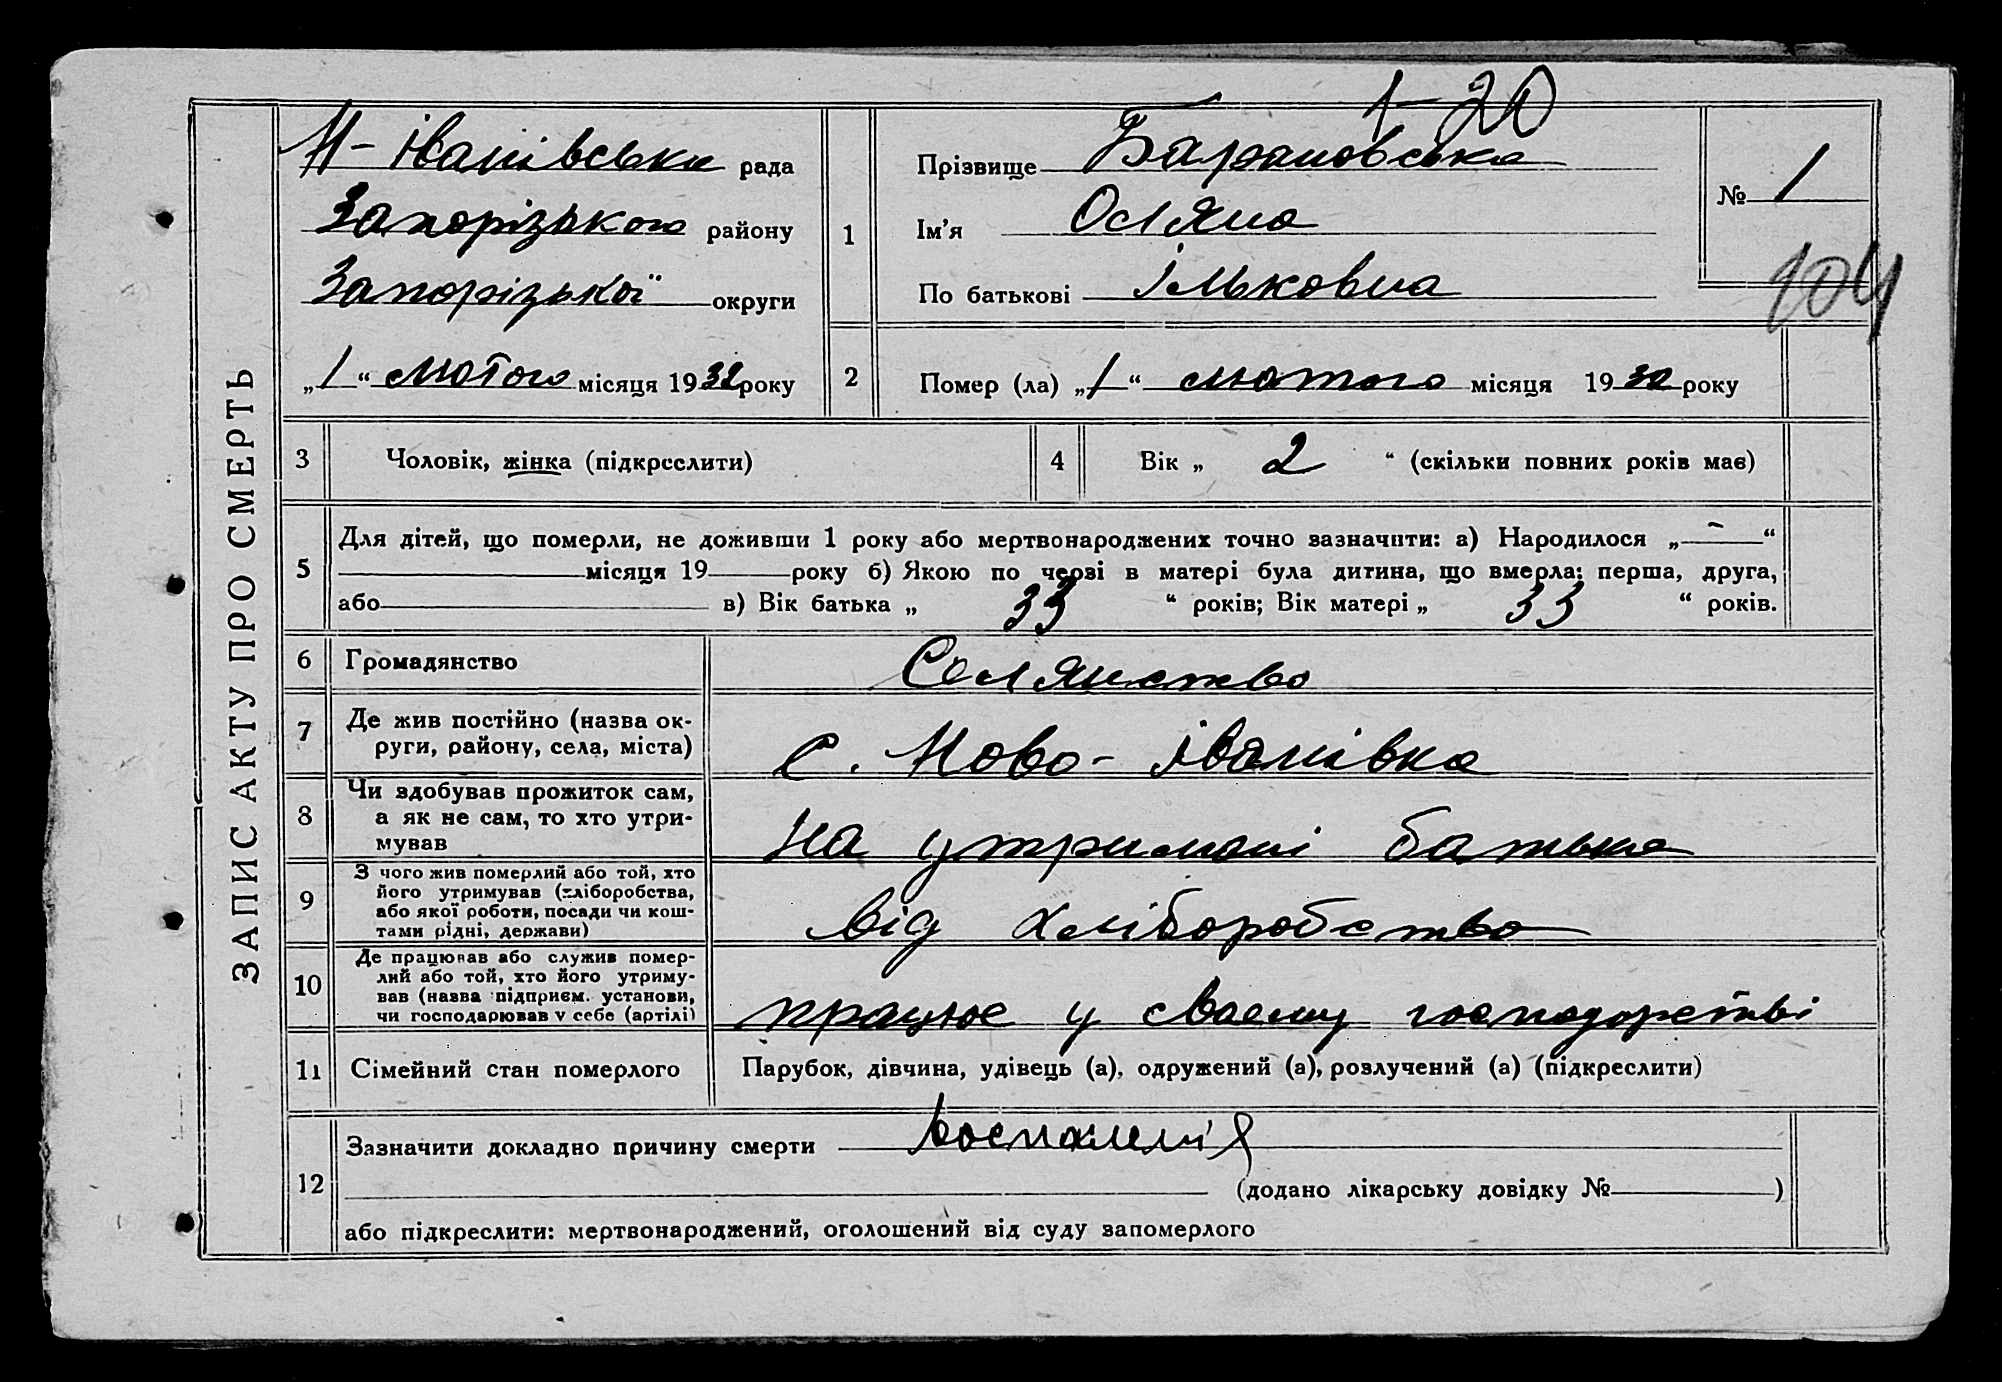 1-20
ЗАПИС АКТУ ПРО СМЕРТЬ
Н-Іванівська рада
Запорізького району
Запорізької округи
„1“ лютого місяця 1932 року
1
Прізвище Барановська
Ім'я Оляна
По батькові Ільковна
№ 1
104
2
Помер (ла) „1“ лютого місяця 1932 року
3
Чоловік, жінка (підкреслити)
4
Вік „ 2 “ (скільки повних років має)
5
Для дітей, що померли, не доживши 1 року або мертвонароджених точно зазначити: а) Народилося „—“
місяця 19 року б) Якою по черзі в матері була дитина, що вмерла: перша, друга,
або в) Вік батька „ 33 “ років; Вік матері „ 33 “ років.
6
Громадянство
Селянство
7
Де жив постійно (назва ок-
руги, району, села, міста)
с. Ново-Іванівка
8
Чи здобував прожиток сам,
а як не сам, то хто утри-
мував
На утримані батька
9
З чого жив померлий або той, хто
його утримував (хліборобства,
або якої роботи, посади чи кош-
тами рідні, держави)
від хліборобства
10
Де працював або служив помер-
лий або той, хто його утриму-
вав (назва підприєм. установи,
чи господарював у себе (артілі)
працює у своєму господорстві
11
Сімейний стан померлого
Парубок, дівчина, удівець (а), одружений (а), розлучений (а) (підкреслити)
12
Зазначити докладно причину смерти воспаленія
(додано лікарську довідку № )
або підкреслити: мертвонароджений, оголошений від суду запомерлого